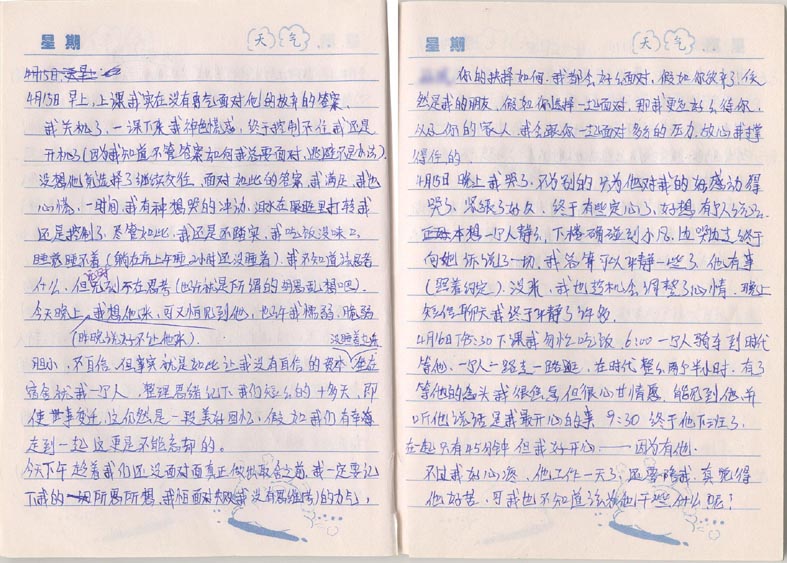 星期 天气
4月15日早上
4月15日 早上,上课我实在没有勇气面对他的放弃的答案。
我关机了,一课下来我神色慌惑,终于控制不住我还是
开机了(因为我知道不管答案如何我总要面对,逃避不是办法)。
没想他竟选择了继续交往,面对如此的答案,我满足,我也
心慌,一时间,我有种想哭的冲动,泪水在眼眶里打转我
还是控制了。尽管如此,我还是不踏实,我吃饭没味口,
睡觉睡不着(躺在床上午睡2小时还没睡着),我不知道该思考
什么,但无时不在思考(也许就是所谓的胡思乱想吧)。
今天晚上,我想他来,可又怕见到他,也许我懦弱,脆弱
(昨晚说好不让他来) 没睡着
胆小,不自信,但事实就是如此让我没有自信的资本,坐在
宿舍就我一个人,整理思绪记下我们这么的十多天,即
使世事变迁,这仍然是一段美好回忆,假如我们有幸
走到一起这更是不能忘却的。
今天下午趁着我们还没面对面真正做出取舍之前,我一定要记
下我的所思所想,我怕面对
星期 天气
你的抉择如何,我都会好好面对,假如你放弃了,依
然是我的朋友,假如你选择一起面对,那我更会好好待你,
以及你的家人,我会跟你一起面对多多的压力,放心我撑
得住的。
4月15日 晚上 我哭了,不为别的只为他对我的好感动得
哭了,紧绷了好久,终于有些定心了,好想有个人说说。
本想一个人静静,下楼碰到小凡,边哭边走终于
向她诉说了一切,我答案可以平静一些了,他有事
(照着约定)没来,我也趁机会调整了心情,晚上
短信聊天我终于平静了许多。
4月16日 下午5:30下课我匆忙吃饭,6:00一个人骑车到时代
等他,一个人一路走一路逛,在时代整么两个半小时,有了
等他的念头我很焦急但很心甘情愿,能见到他,并
听他说话是我最开心的事,9:30 终于他下班了,
在一起只有45分钟 但我好开心——因为有他。
不过我好心疼,他工作一天了,还要陪我,真觉得
他好苦,可我也不知道该为他干些什么呢?